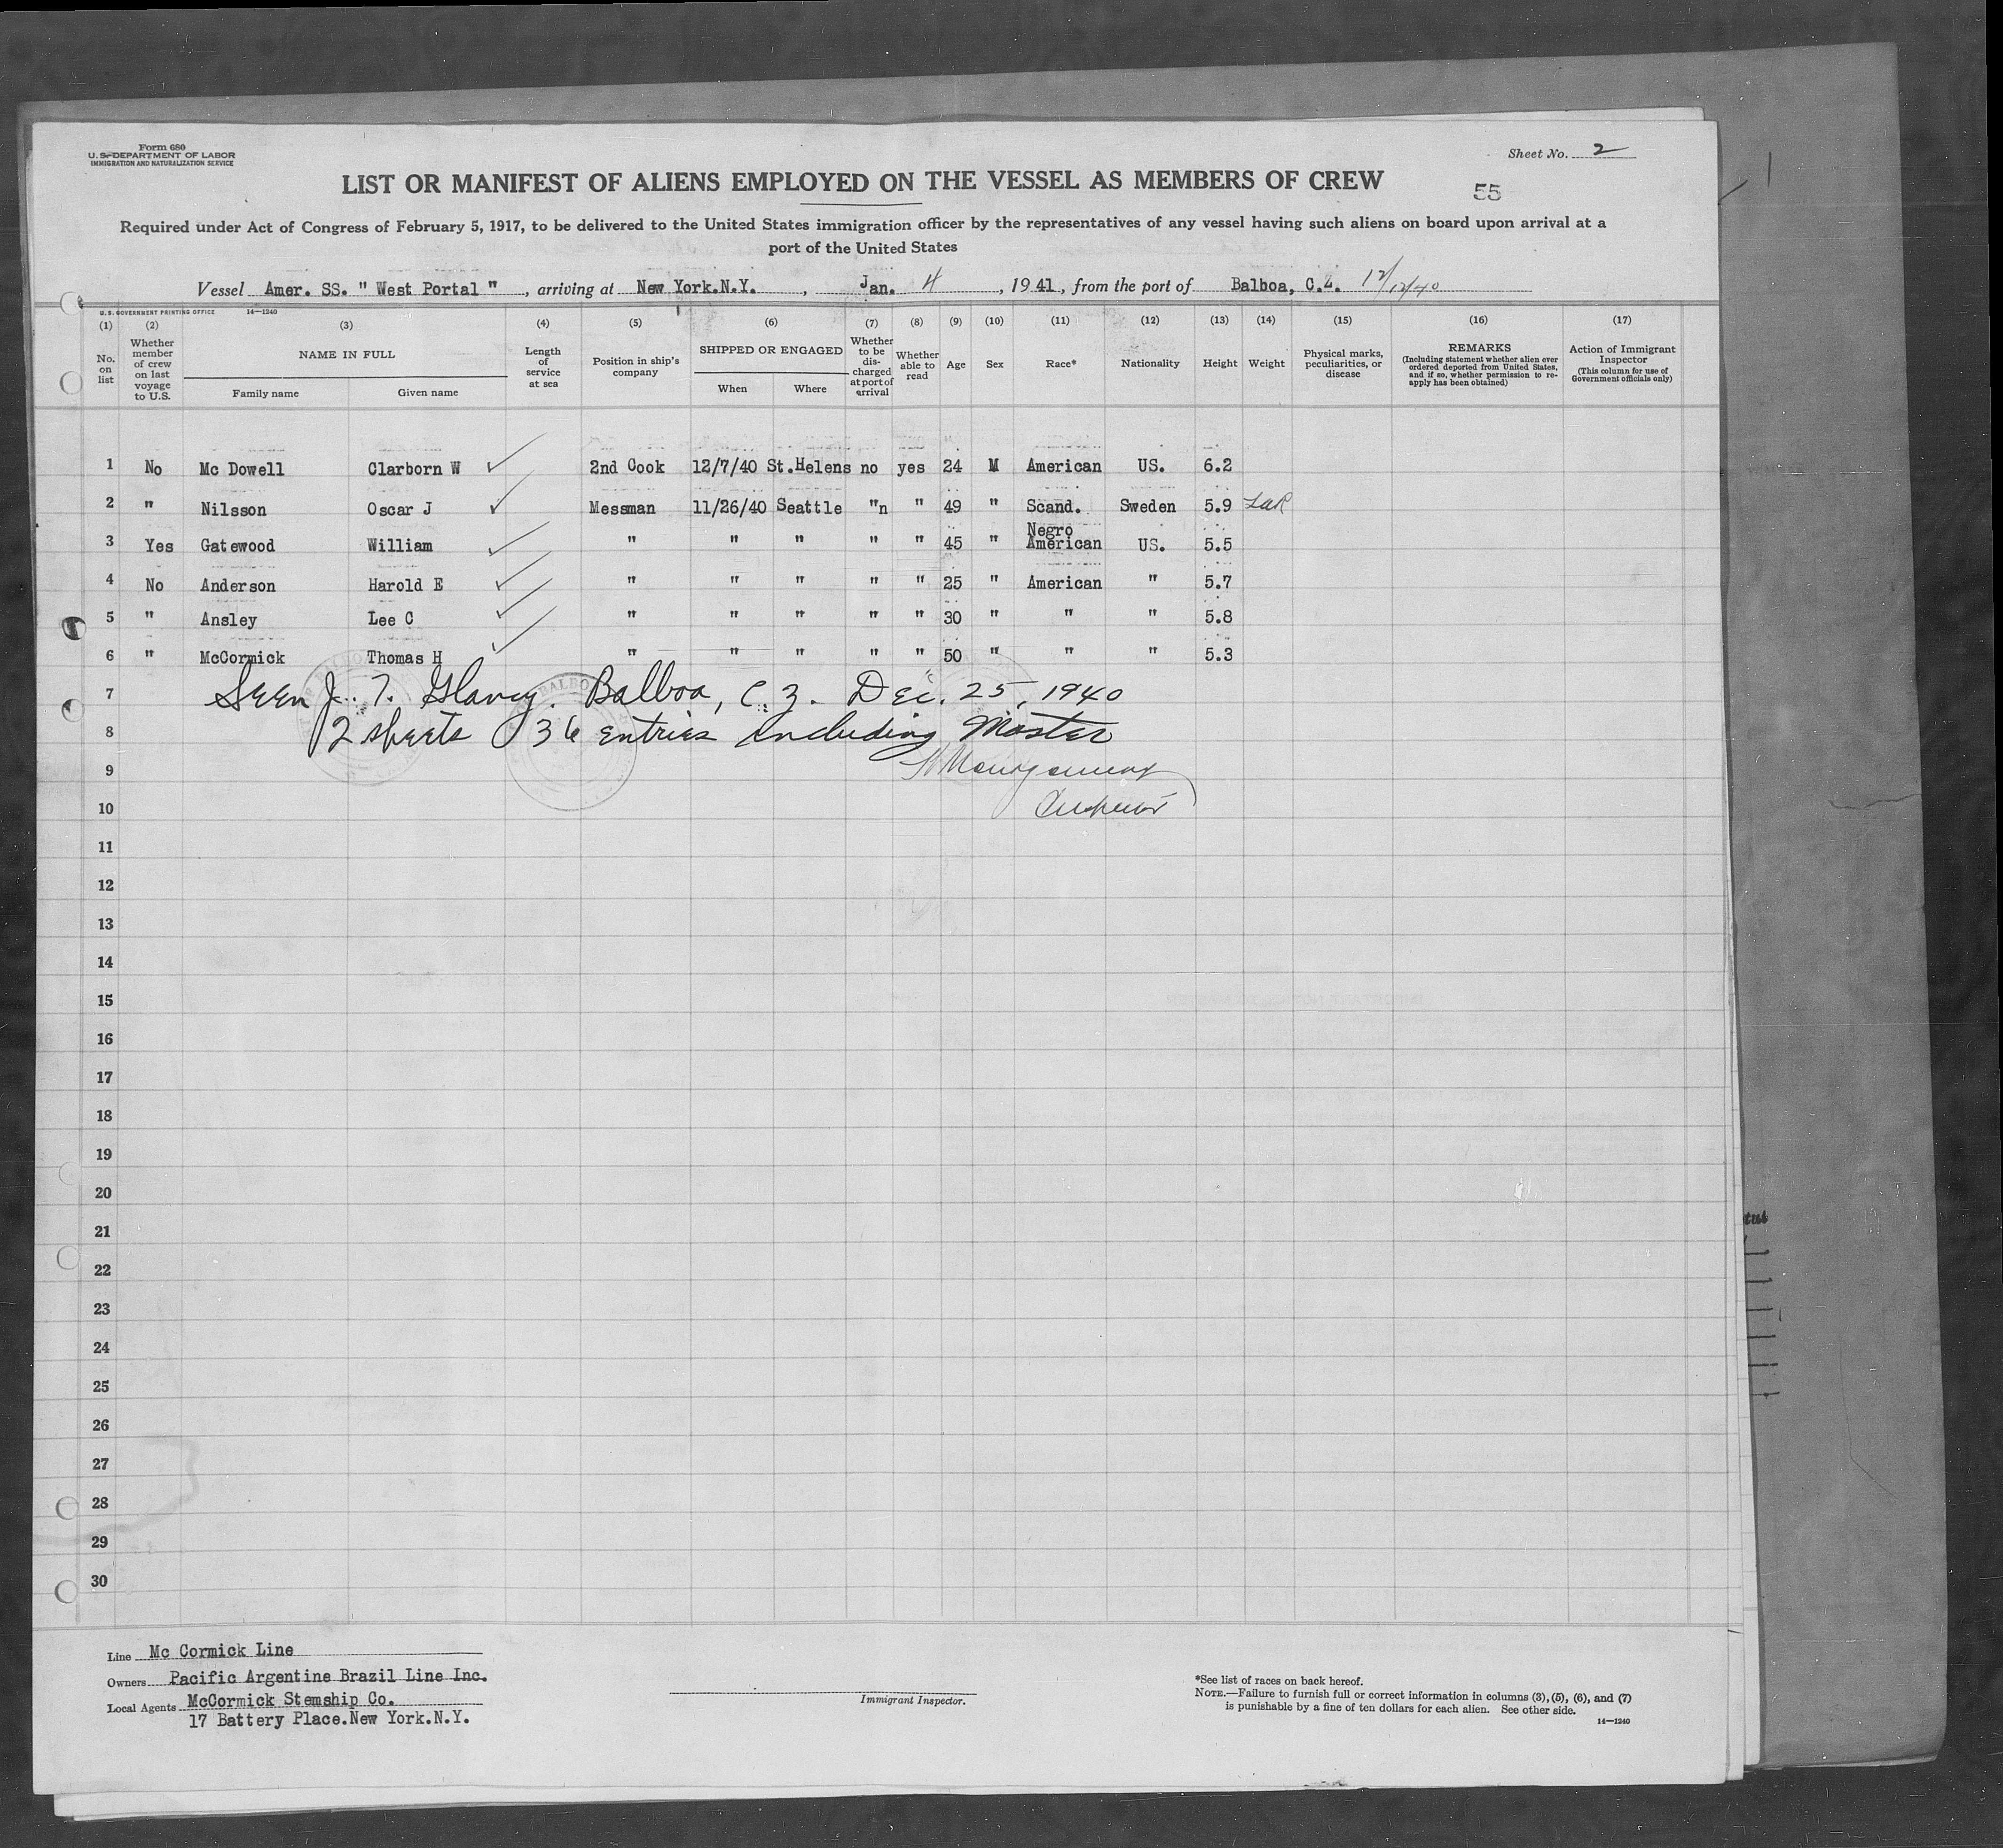 Form 680
U. S. DEPARTMENT OF LABOR
IMMIGRATION AND NATURALIZATION SERVICE
Sheet No. 2
LIST OR MANIFEST OF ALIENS EMPLOYED ON THE VESSEL AS MEMBERS OF CREW
55
Required under Act of Congress of February 5, 1917, to be delivered to the United States immigration officer by the representatives of any vessel having such aliens on board upon arrival at a
port of the United States
Vessel Amer. SS. " West Portal " , arriving at New York.N.Y. , Jan. 4 , 1941, from the port of Balboa, C.Z.
U. S. GOVERNMENT PRINTING OFFICE 14—1240
(1) (2) (3) (4) (5) (6) (7) (8) (9) (10) (11) (12) (13) (14) (15) (16) (17)
No. on list
Whether member of crew on last voyage to U.S.
NAME IN FULL
Family name Given name
Length of service at sea
Position in ship's company
SHIPPED OR ENGAGED
When Where
Whether to be discharged at port of arrival
Whether able to read
Age
Sex
Race*
Nationality
Height
Weight
Physical marks, peculiarities, or disease
REMARKS
(Including statement whether alien ever ordered deported from United States, and if so, whether permission to re-apply has been obtained)
Action of Immigrant Inspector
(This column for use of Government officials only)
1 No Mc Dowell Clarborn W 2nd Cook 12/7/40 St.Helens no yes 24 M American US. 6.2
2 " Nilsson Oscar J Messman 11/26/40 Seattle "n " 49 " Scand. Sweden 5.9
Negro
3 Yes Gatewood William " " " " " 45 " American US. 5.5
4 No Anderson Harold E " " " " " 25 " American " 5.7
5 " Ansley Lee C " " " " " 30 " " " 5.8
6 " McCormick Thomas H " " " " " 50 " " " 5.3
7 Seen J. T. Balboa, C. Z. Dec. 25, 1940
8 2 sheets 36 entries including Master
9 Montgomery
10 Inspector
11
12
13
14
15
16
17
18
19
20
21
22
23
24
25
26
27
28
29
30
Line Mc Cormick Line
Owners Pacific Argentine Brazil Line Inc.
Local Agents McCormick Stemship Co.
17 Battery Place.New York.N.Y.
Immigrant Inspector.
*See list of races on back hereof.
NOTE.—Failure to furnish full or correct information in columns (3), (5), (6), and (7)
is punishable by a fine of ten dollars for each alien. See other side.
14—1240